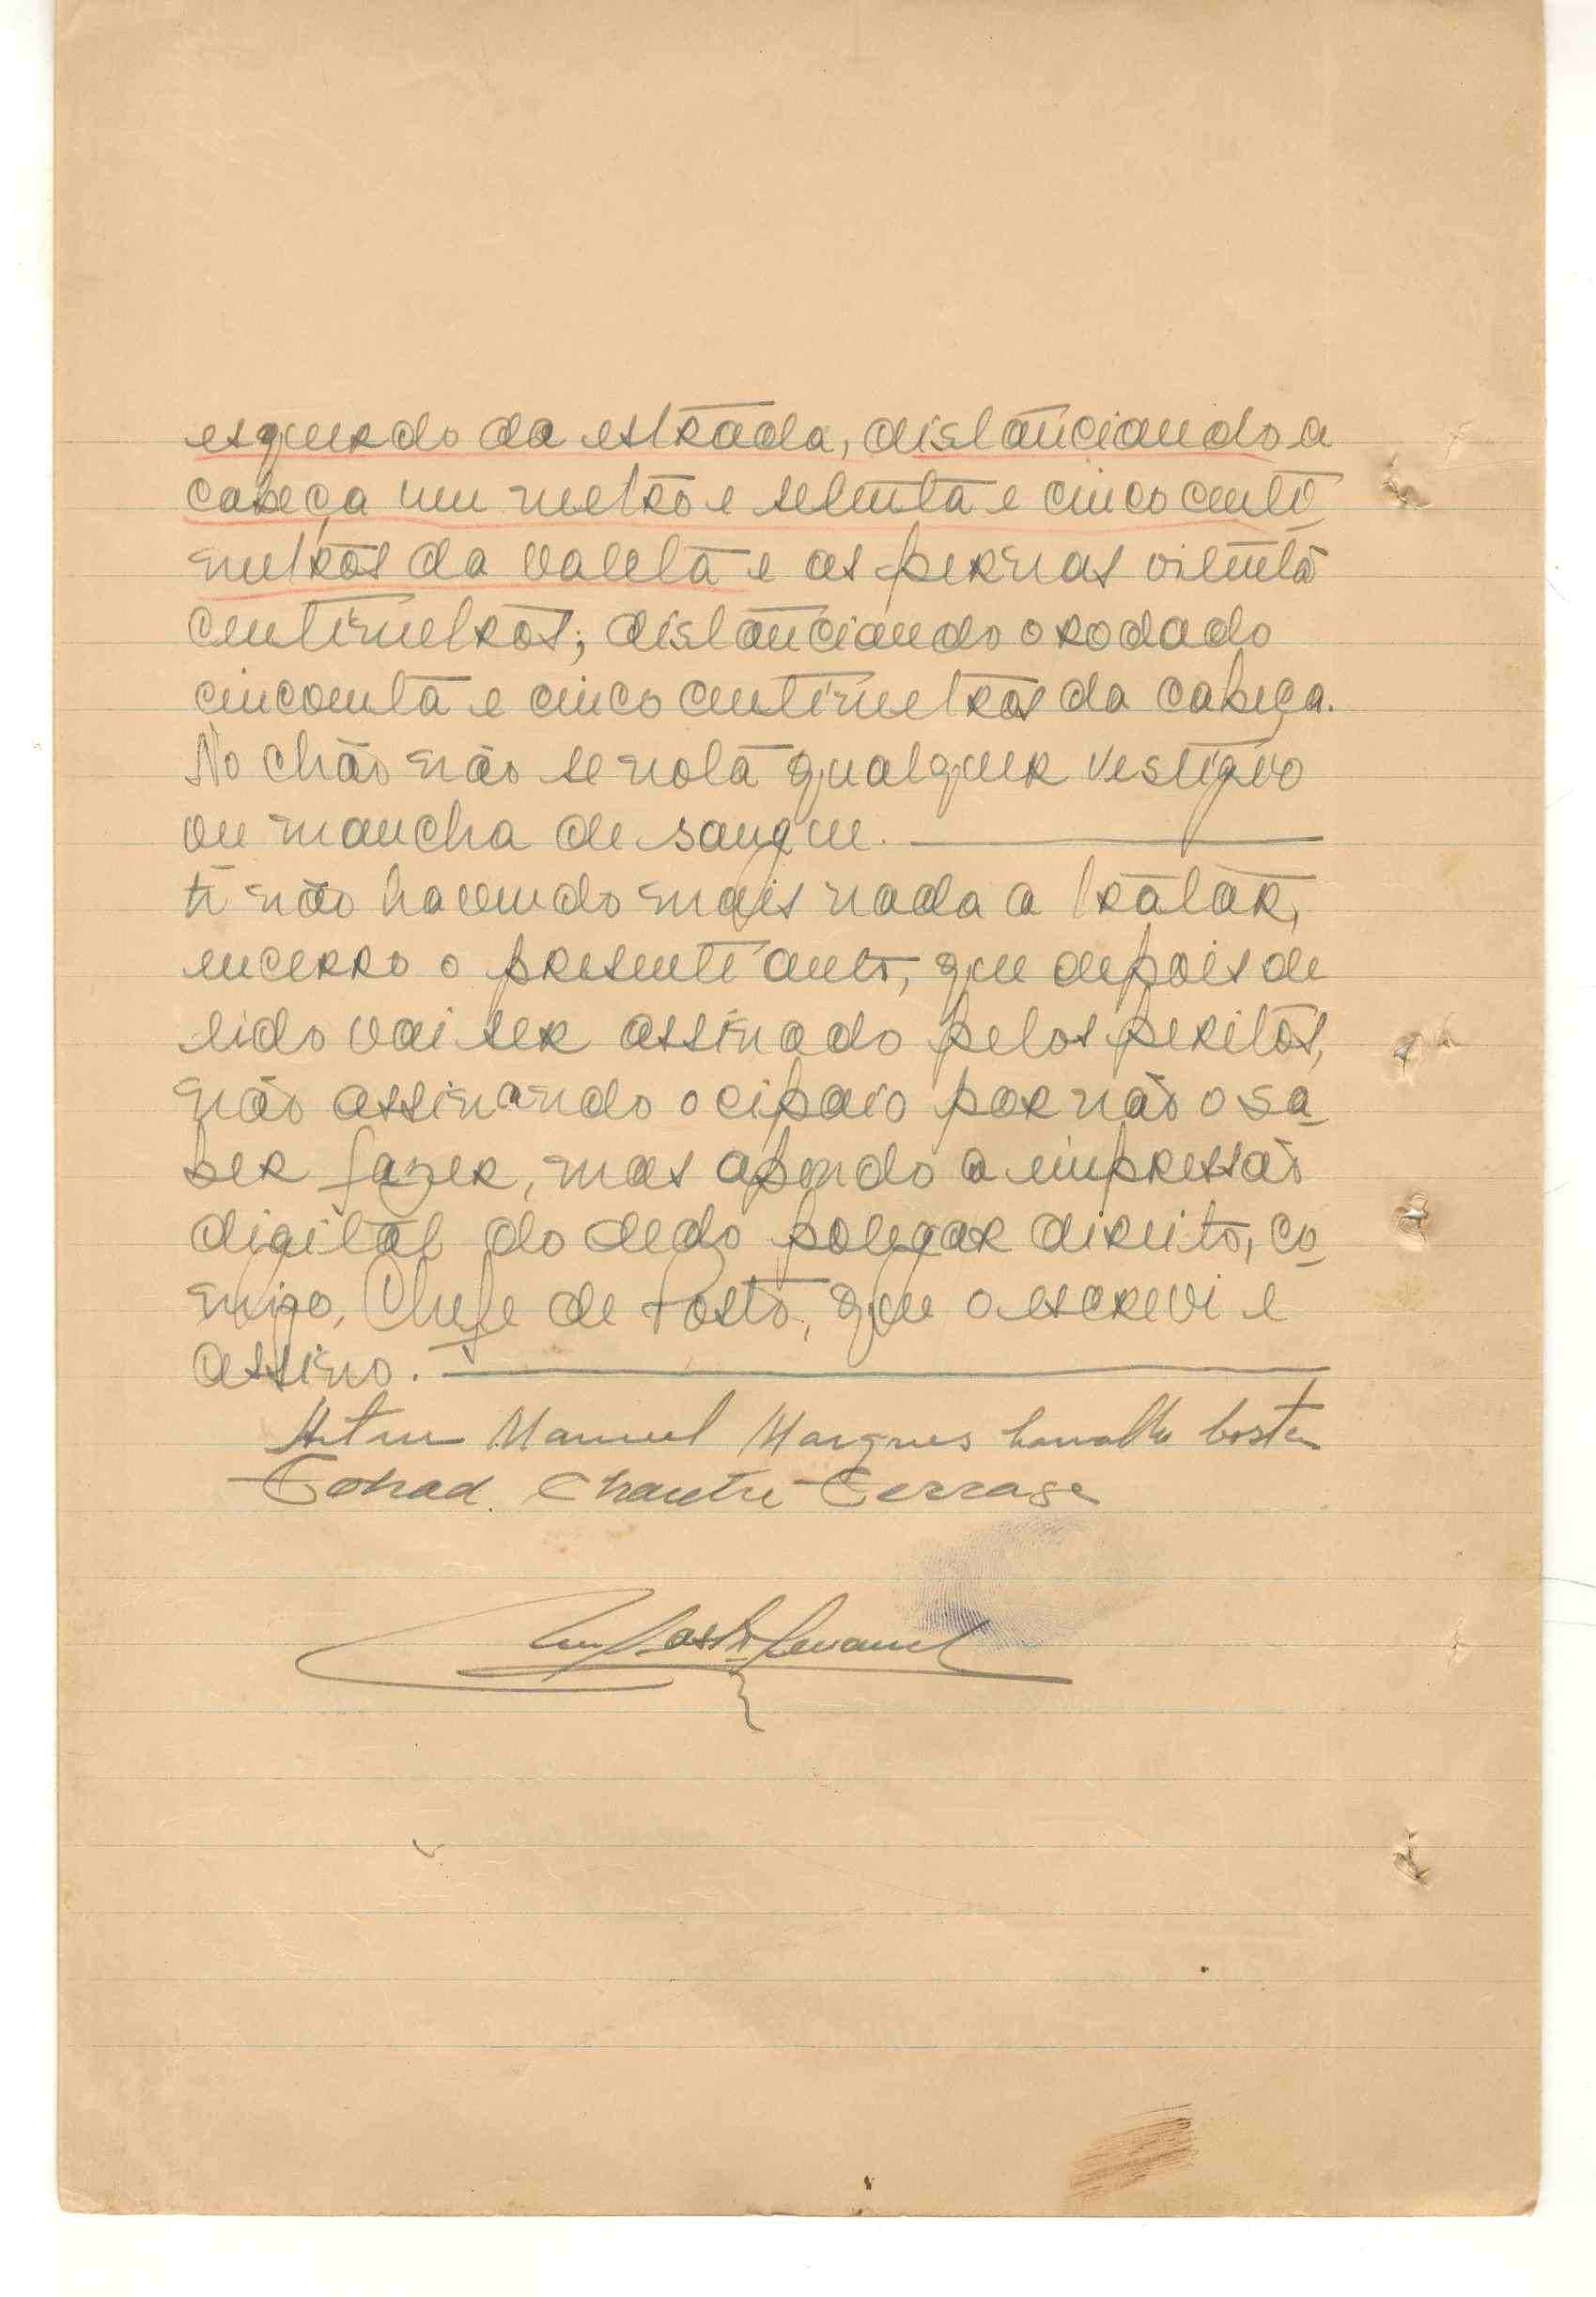 esquerdo da estrada, distanciando a
cabeça um metro e setenta e cinco centi
metros da valeta e as pernas oitenta
centimetros; distanciando o rodado
cincoenta e cinco centimetros da cabeça.
No chão não se nota qualquer vestigio
ou mancha de sangue.
E não havendo mais nada a tratar,
encerro o presente auto, que depois de
lido vai ser assinado pelos peritos,
não assinando o cipaio por não o sa-
ber fazer, mas apondo a impressão
digital do dedo polegar direito, co-
migo, Chefe de Posto, que o escrevi e
assino.
Artur Manuel Marques Carvalho Costa
Conrad. Chantre